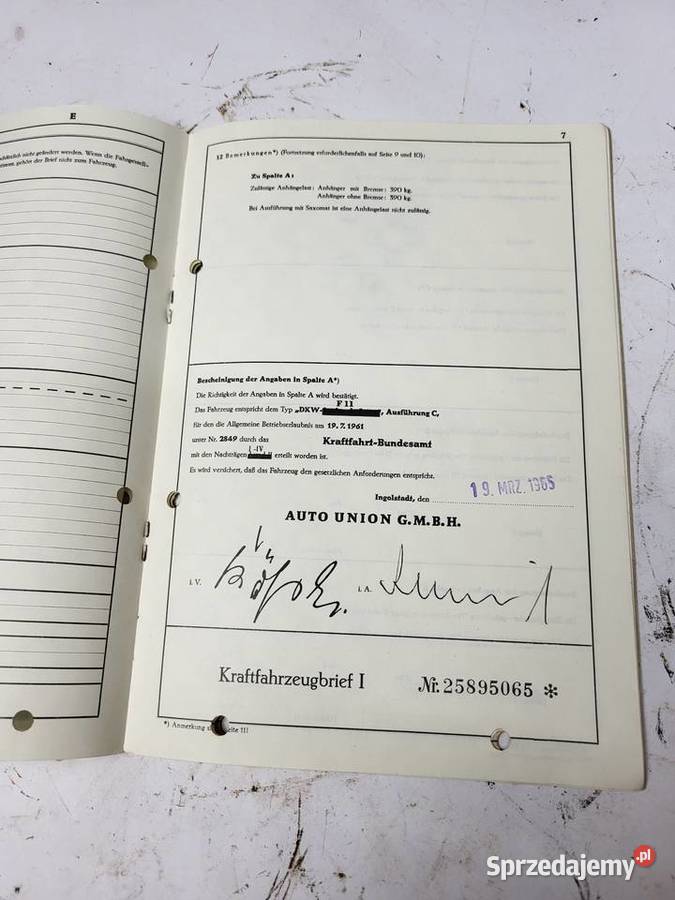 E
nicht geändert werden. Wenn die Fahrgestell-
gehört der Brief nicht zum Fahrzeug.
7
12 Bemerkungen*) (Fortsetzung erforderlichenfalls auf Seite 9 und 10):
Zu Spalte A:
Zulässige Anhängelast: Anhänger mit Bremse: 390 kg.
Anhänger ohne Bremse: 390 kg.
Bei Ausführung mit Saxomat ist eine Anhängelast nicht zulässig.
Bescheinigung der Angaben in Spalte A*)
Die Richtigkeit der Angaben in Spalte A wird bestätigt.
F 11
Das Fahrzeug entspricht dem Typ „DKW- , Ausführung C,
für den die Allgemeine Betriebserlaubnis am 19.7.1961
unter Nr. 2849 durch das Kraftfahrt-Bundesamt
I -IV
mit den Nachträgen erteilt worden ist.
Es wird versichert, daß das Fahrzeug den gesetzlichen Anforderungen entspricht.
Ingolstadt, den 19. MRZ. 1965
AUTO UNION G.M.B.H.
i. V. i. A.
Kraftfahrzeugbrief I Nr. 25895065 *
*) Anmerkung Seite 11!
Sprzedajemy.pl